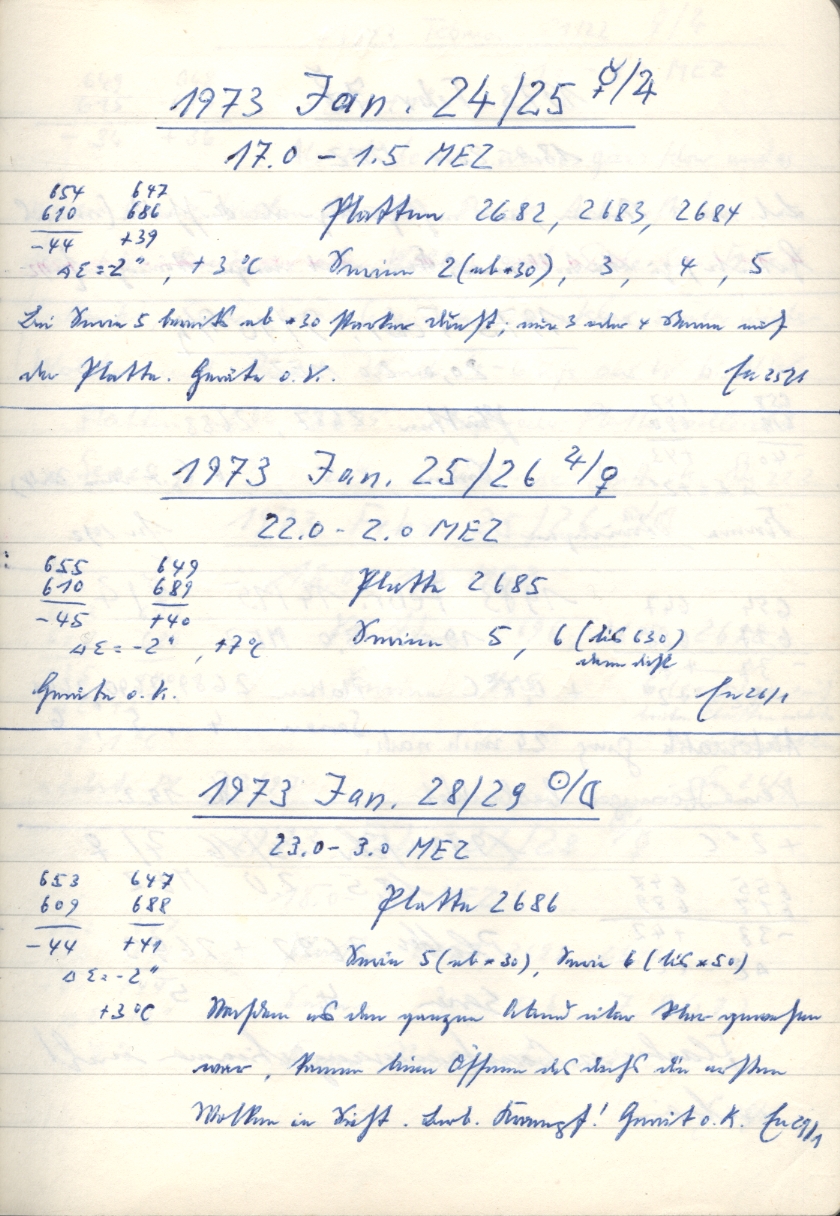 1973 Jan. 24/25 ☿/♃
17.0 – 1.5 MEZ
654 647
610 686 Platten 2682, 2683, 2684
-44 +39
Δε = -2", +3°C Serien 2 (ab *30), 3, 4, 5
Bei Serie 5 bereits ab *30 starker Dunst; nur 3 oder 4 Sterne auf
der Platte. Geräte o.K. 25/1
1973 Jan. 25/26 ♃/♀
22.0 – 2.0 MEZ
655 649
610 689 Platte 2685
-45 +40
Δε = -2", +7°C Serien 5, 6 (bis 630)
dann dicht
Geräte o.K. 26/1
1973 Jan. 28/29 ☉/☾
23.0 – 3.0 MEZ
653 647
609 688 Platte 2686
-44 +41
Δε = -2" Serie 5 (ab *30), Serie 6 (bis *50)
+3°C Nachdem es den ganzen Abend über klar gewesen
war, kamen beim Öffnen des Dachs die ersten
Wolken in Sicht. Krampf! Gerät o.K. 29/1